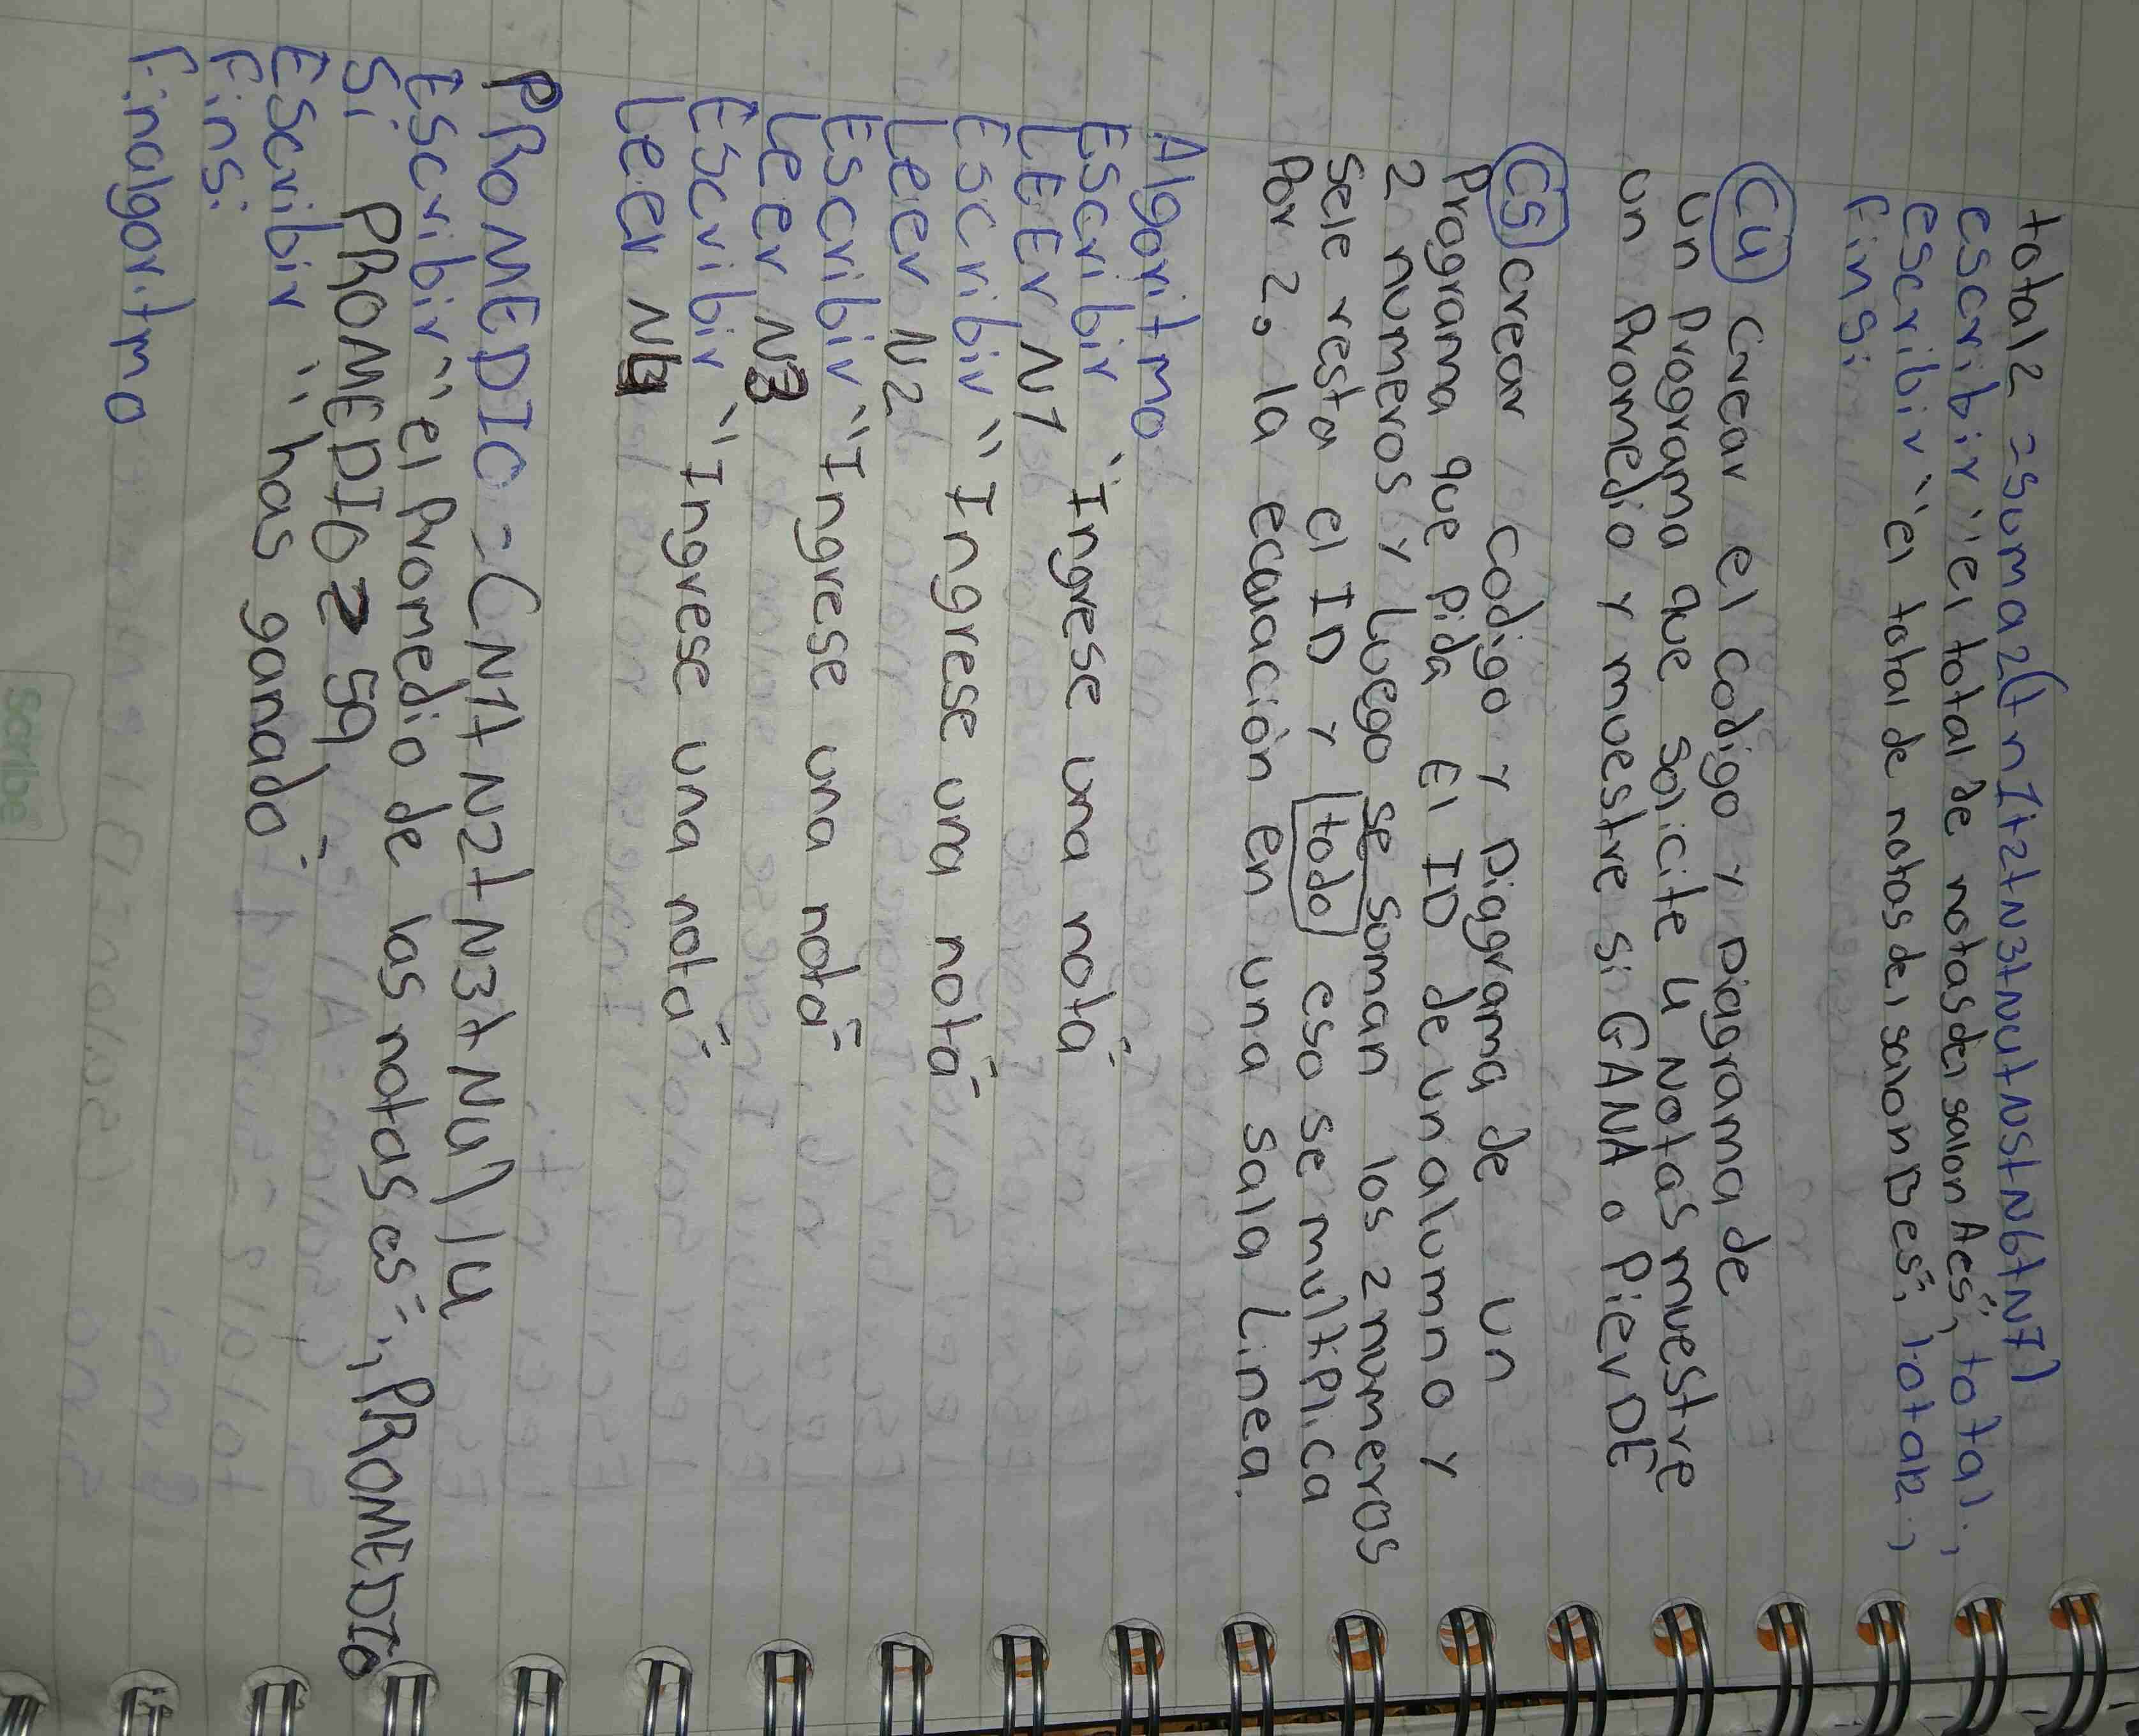 total2 = suma2(+n1+2+N3+N4+N5+N6+N7)
escribir "el total de notas del salon A es", total.,
escribir "el total de notas del salon B es", total2.,
Finsi
C4 crear el codigo y Diagrama de
un programa que solicite 4 Notas muestre
un Promedio y muestre si GANA o PierDE
C5 crear codigo y Diagrama de un
Programa que pida El ID de un alumno y
2 numeros y Luego se suman los 2 numeros
sele resta el ID y todo eso se multiplica
Por 2, la ecuación en una sala Linea.
Algoritmo
Escribir "Ingrese una nota"
LEEr N1
Escribir "Ingrese una nota"
Leer N2
Escribir "Ingrese una nota"
Leer N3
Escribir "Ingrese una nota"
Leer N4
PROMEDIO = (N1+N2+N3+N4)/4
Escribir "el Promedio de las notas es", PROMEDIO
Si PROMEDIO ≥ 59
Escribir "has ganado"
Finsi
Finalgoritmo
scribe